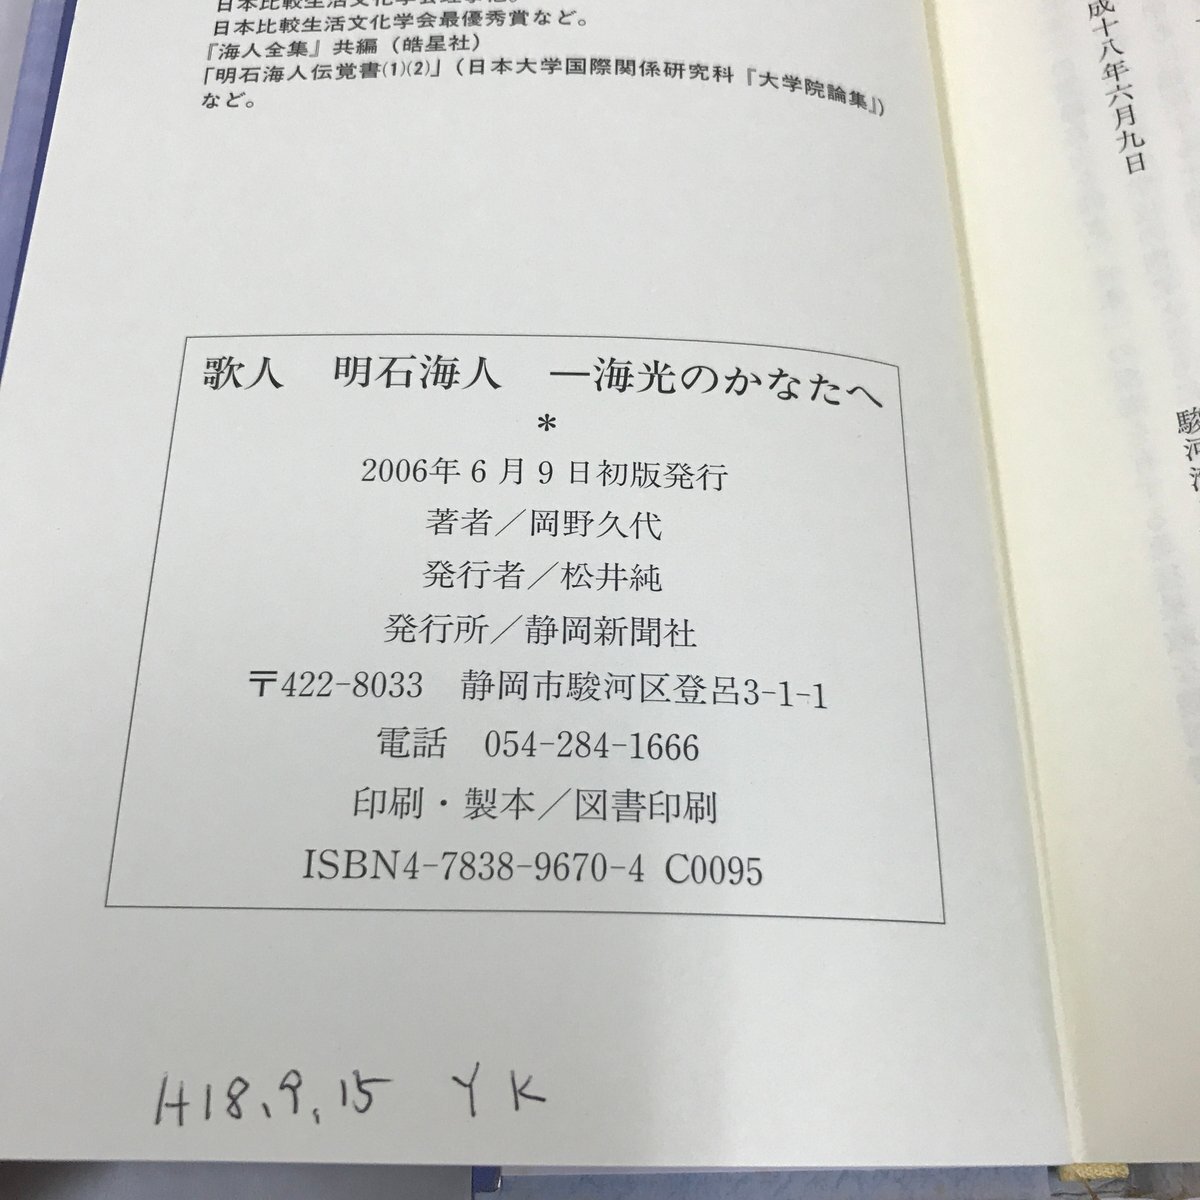 日本比較生活文化学会最優秀賞など。
『海人全集』共編（皓星社）
「明石海人伝覚書(1)(2)」（日本大学国際関係研究科『大学院論集』）
など。
歌人　明石海人　―海光のかなたへ
＊
2006年6月9日初版発行
著者／岡野久代
発行者／松井純
発行所／静岡新聞社
〒422-8033　静岡市駿河区登呂3-1-1
電話　054-284-1666
印刷・製本／図書印刷
ISBN4-7838-9670-4 C0095
H18.9.15 YK
成十八年六月九日
駿河